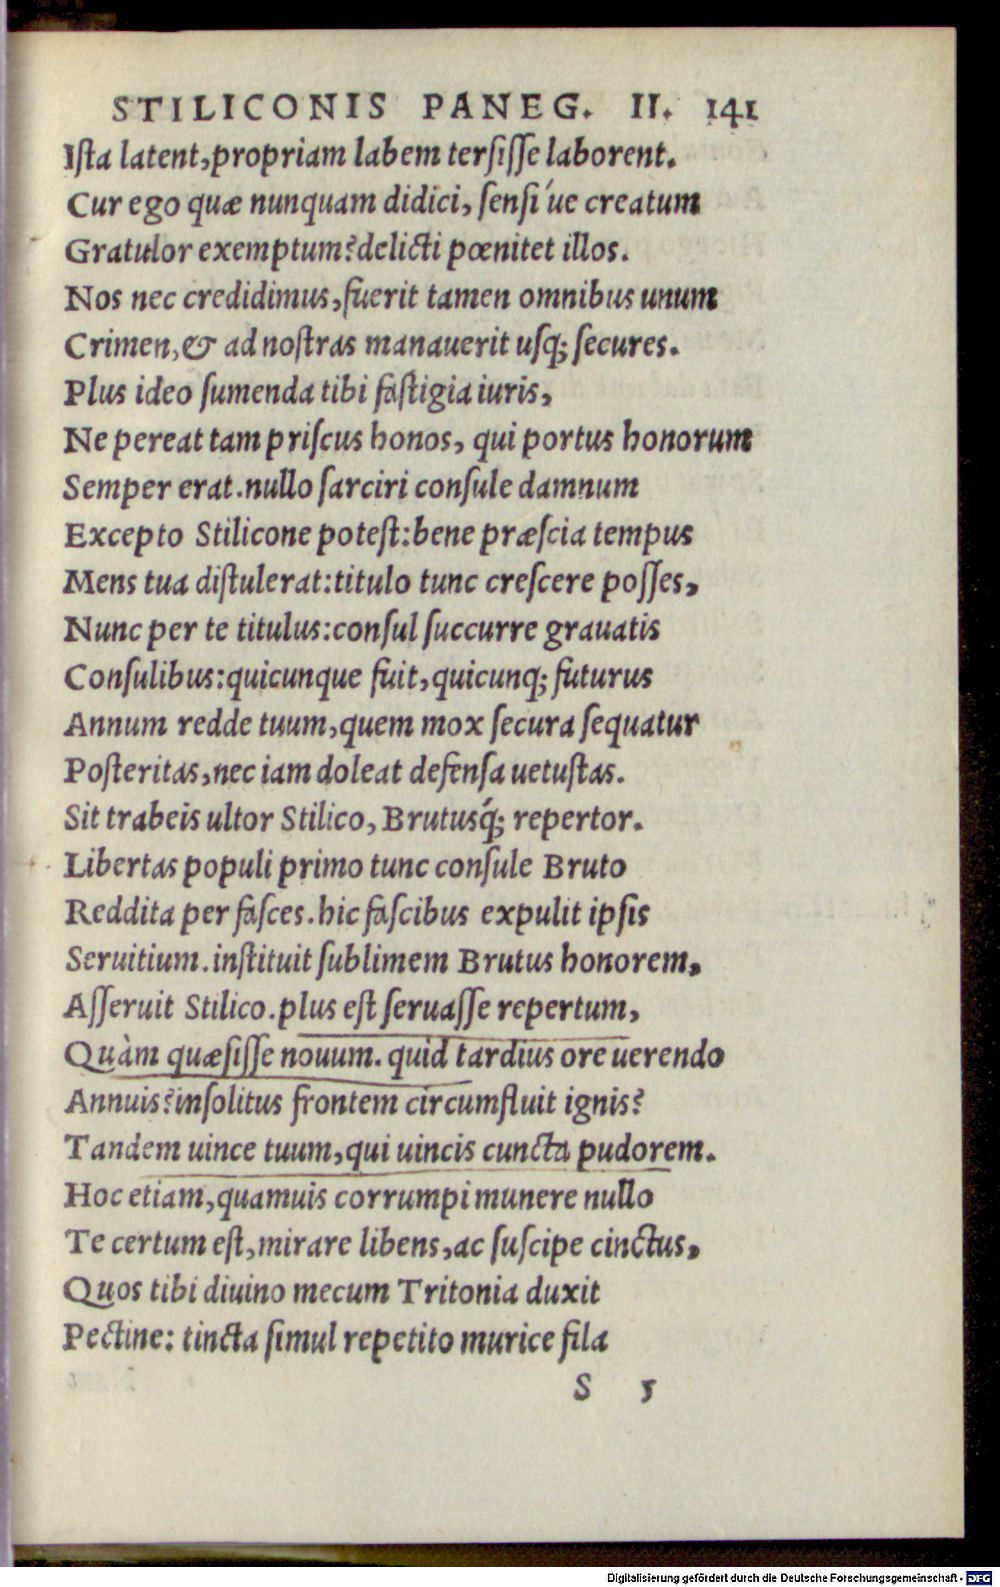 STILICONIS PANEG. II. 141
Iſta latent,propriam labem terſiſſe laborent.
Cur ego quæ nunquam didici, ſenſi´ue creatum
Gratulor exemptum?delicti pœnitet illos.
Nos nec credidimus,fuerit tamen omnibus unum
Crimen,& ad noſtras manauerit uſq; ſecures.
Plus ideo ſumenda tibi faſtigia iuris,
Ne pereat tam priſcus honos, qui portus honorum
Semper erat.nullo ſarciri conſule damnum
Excepto Stilicone poteſt:bene præſcia tempus
Mens tua diſtulerat:titulo tunc creſcere poſſes,
Nunc per te titulus:conſul ſuccurre grauatis
Conſulibus:quicunque fuit,quicunq; futurus
Annum redde tuum,quem mox ſecura ſequatur
Poſteritas,nec iam doleat defenſa uetuſtas.
Sit trabeis ultor Stilico, Brutusq́; repertor.
Libertas populi primo tunc conſule Bruto
Reddita per faſces.hic faſcibus expulit ipſis
Seruitium.inſtituit ſublimem Brutus honorem,
Aſſeruit Stilico.plus eſt ſeruaſſe repertum,
Quàm quæſiſſe nouum. quid tardius ore uerendo
Annuis?inſolitus frontem circumfluit ignis?
Tandem uince tuum,qui uincis cuncta pudorem.
Hoc etiam,quamuis corrumpi munere nullo
Te certum eſt,mirare libens,ac ſuſcipe cinctus,
Quos tibi diuino mecum Tritonia duxit
Pectine: tincta ſimul repetito murice fila
S 5
Digitalisierung gefördert durch die Deutsche Forschungsgemeinschaft - DFG